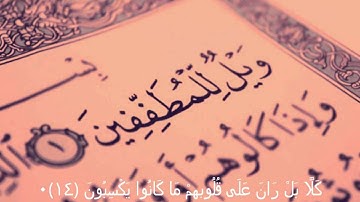 بِسْـ
وَيْلٌ لِّلْمُطَفِّفِينَ ١
وَإِذَا كَالُوهُمْ
كَلَّا بَلْ رَانَ عَلَى قُلُوبِهِم مَّا كَانُوا يَكْسِبُونَ (١٤)٠